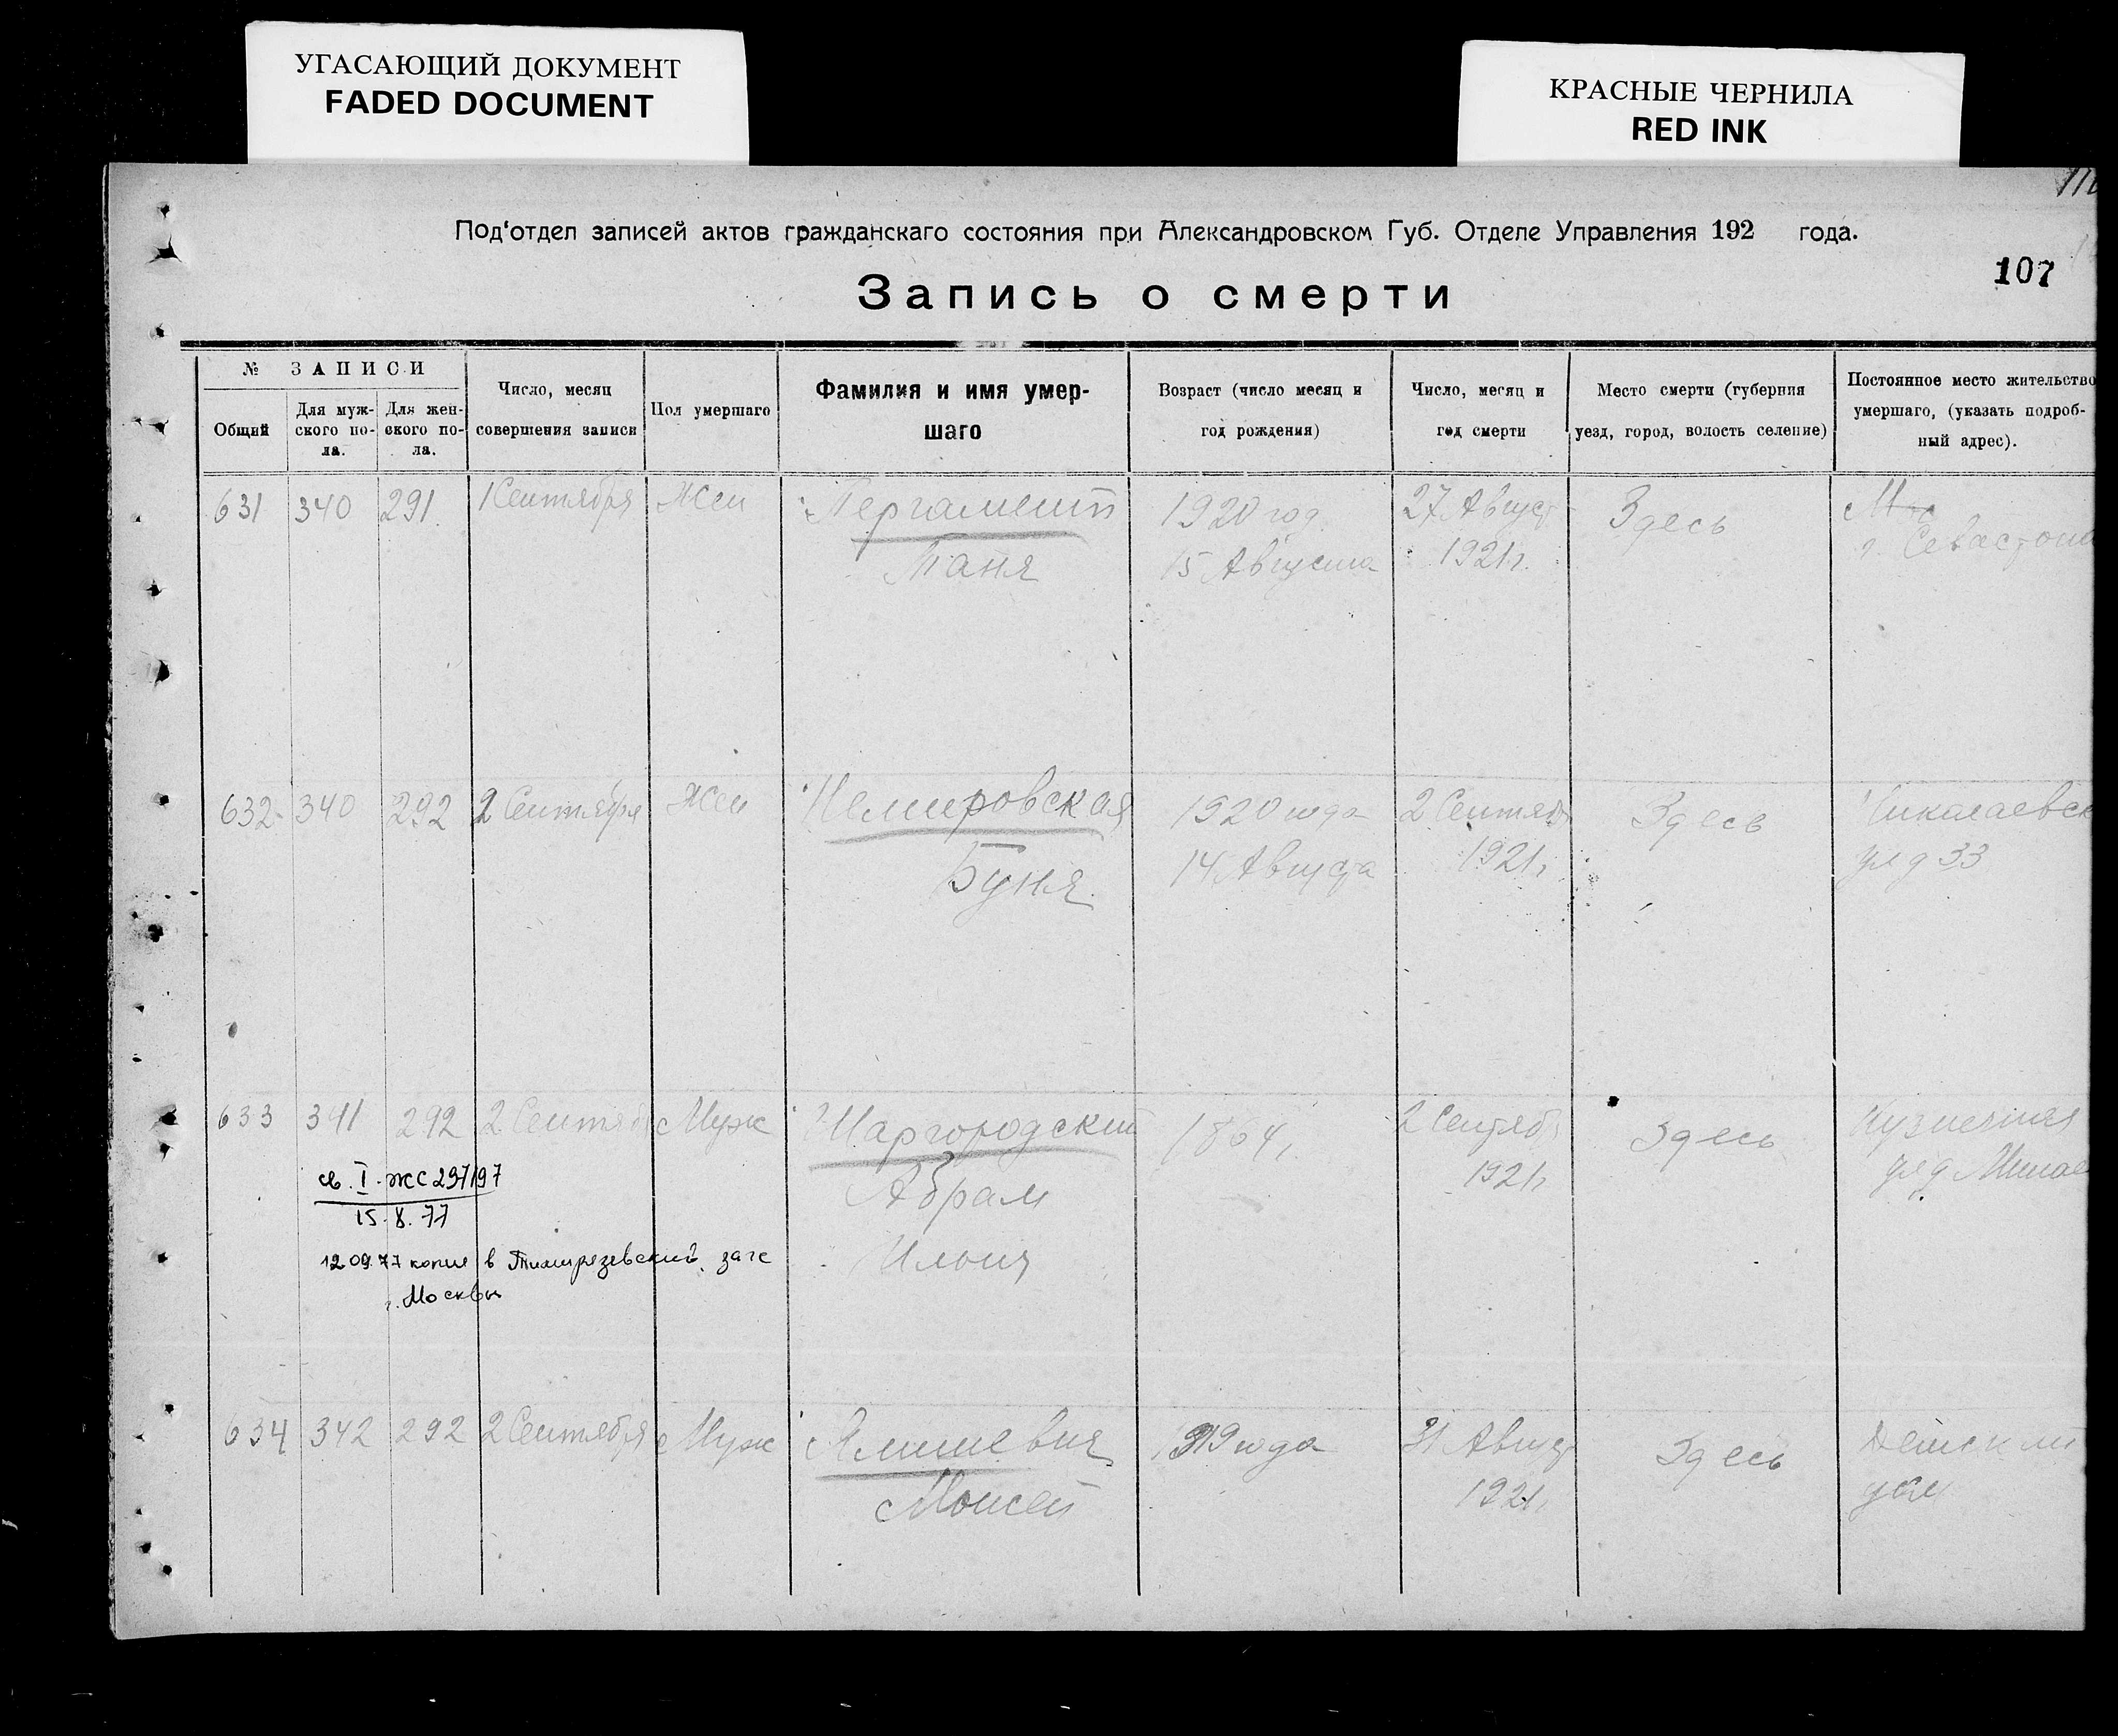 УГАСАЮЩИЙ ДОКУМЕНТ
FADED DOCUMENT
КРАСНЫЕ ЧЕРНИЛА
RED INK
Под'отдел записей актов гражданскаго состояния при Александровском Губ. Отделе Управления 192 года.
107
Запись о смерти
№ ЗАПИСИ
Общий
Для муж-
ского по-
ла.
Для жен-
ского по-
ла.
Число, месяц
совершения записи
Пол умершаго
Фамилия и имя умер-
шаго
Возраст (число месяц и
год рождения)
Число, месяц и
год смерти
Место смерти (губерния
уезд, город, волость селение)
Постоянное место жительство
умершаго, (указать подроб-
ный адрес).
631 340 291 1 Сентября Жен Пергамент 1920 год 27 Август Здесь
г. Севастопо
Таня 15 Августа 1921г.
632 340 292 2 Сентября Жен Немировская 1920 года 2 Сентяб Здесь Николаевск
Буня 14 Августа 1921г. ул д 33
633 341 292 2 Сентяб Муж Шаргородский 1864г. 2 Сентяб Здесь Кузнечная
Абрам 1921г. ул д
Ильич
св. I-ЖС 297197
15.8.77
12.09.77 копия в Тимирязевский загс
г. Москвы
634 342 292 2 Сентября Муж 1919 года 31 Август Здесь
Моисей 1921г.